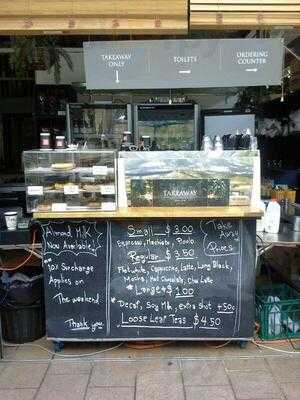 TAKEAWAY
ONLY
TOILETS
ORDERING
COUNTER
TAKEAWAY
Almond Milk
Now Available!
10% Surcharge
Applies on
The weekend
Thank you
Small $3.00
Espresso, Macchiato, Piccolo.
Regular $3.50
Flat white, Cappuccino, Latte, Long Black,
Mocha, Hot Chocolate, Chai Latte
Large + $1.00
Decaf, Soy Milk, extra shot +50c
Loose Leaf Teas $4.50
Take
Away
Prices